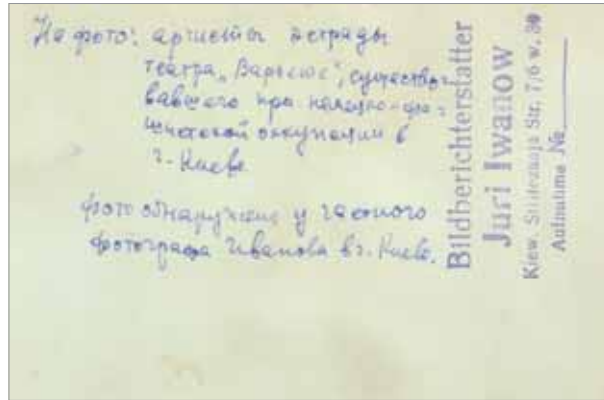 На фото: артисты эстрады
театра „Варьете", существо-
вавшего при немецко-фа-
шистской оккупации в
г. Киеве
фото обнаружено у частного
фотографа Иванова в г. Киеве.
Bildberichterstatter
Juri Iwanow
Kiew, Str. 7/6 w. 30
Aufnahme №